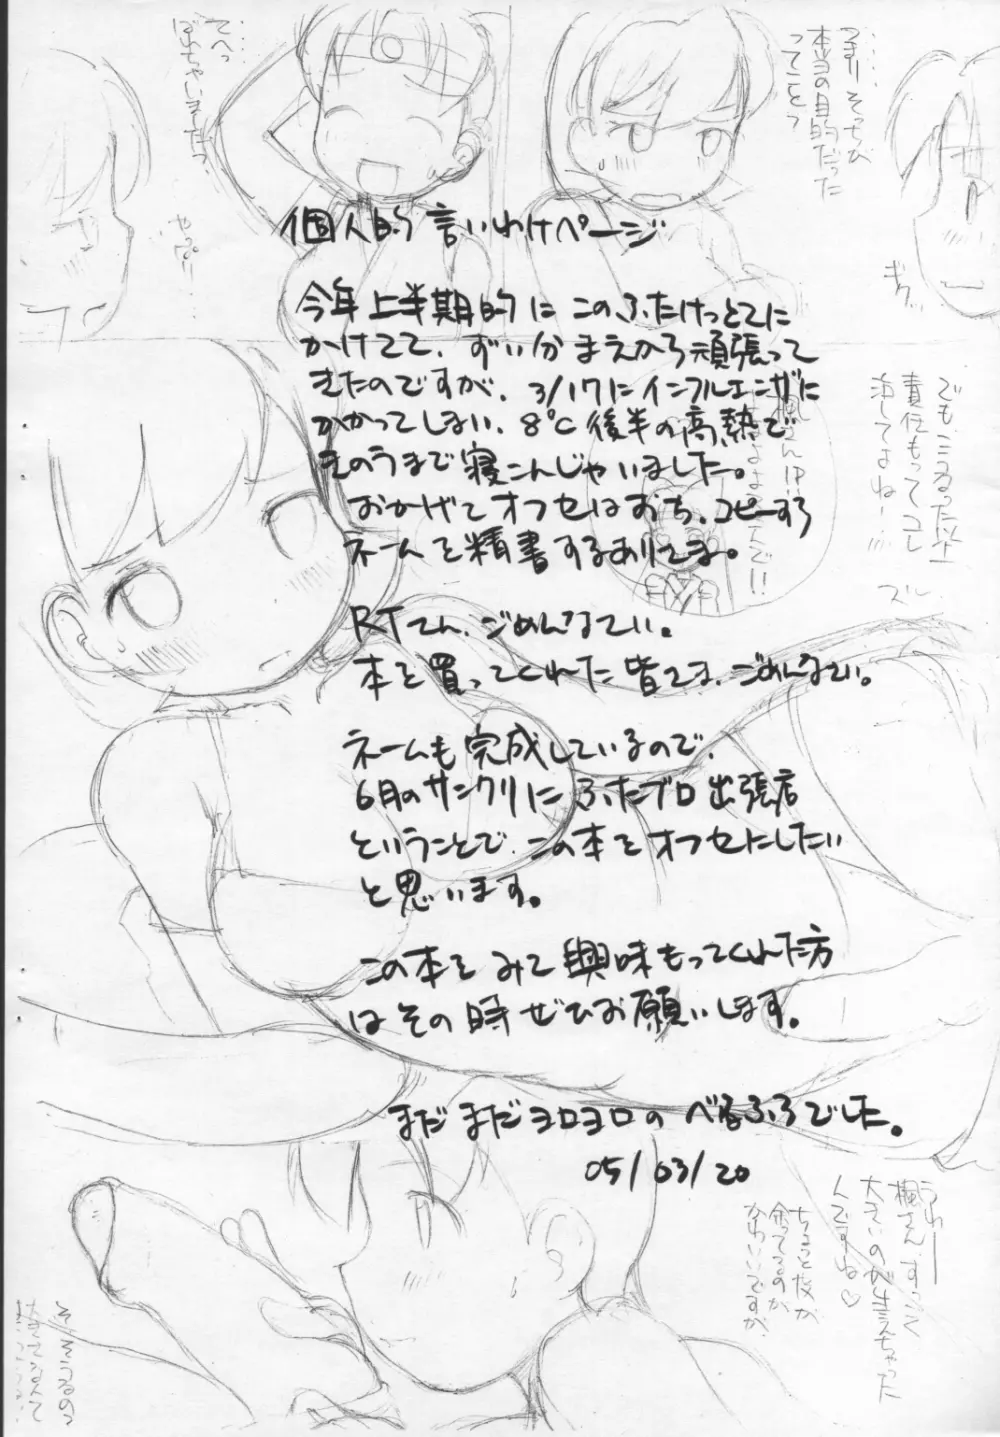 個人的言いわけページ
今年上半期的にこのふたけっとさに
かけてて、ずい分まえから頑張って
きたのですが、3/17にインフルエンザに
かかってしまい、8℃後半の高熱で
きのうまで寝こんじゃいました。
おかげでオフセはおち、コピーすら
ネームを精書するありさま。
RTさん、ごめんなさい。
本を買ってくれた皆さま、ごめんなさい。
ネームも完成しているので、
6月のサンクリにふたブロ出張店
ということで、この本をオフセにしたい
と思います。
この本をみて興味もってくれた方
はその時ぜひお願いします。
まだまだヨロヨロのべるふろでした。
05/03/20
つまりそっちが
本当の目的だった
ってこと?
てへっ
ばれちゃいました?
やっぱー……
ギク
でも
責任もってコレ
治してよねー!!!
うわー
楓さん、すっごく
大きいのが生えちゃった
んですね♡
ちょっと皮が
余ってるのが
かわいいですが
そ、そうなの?